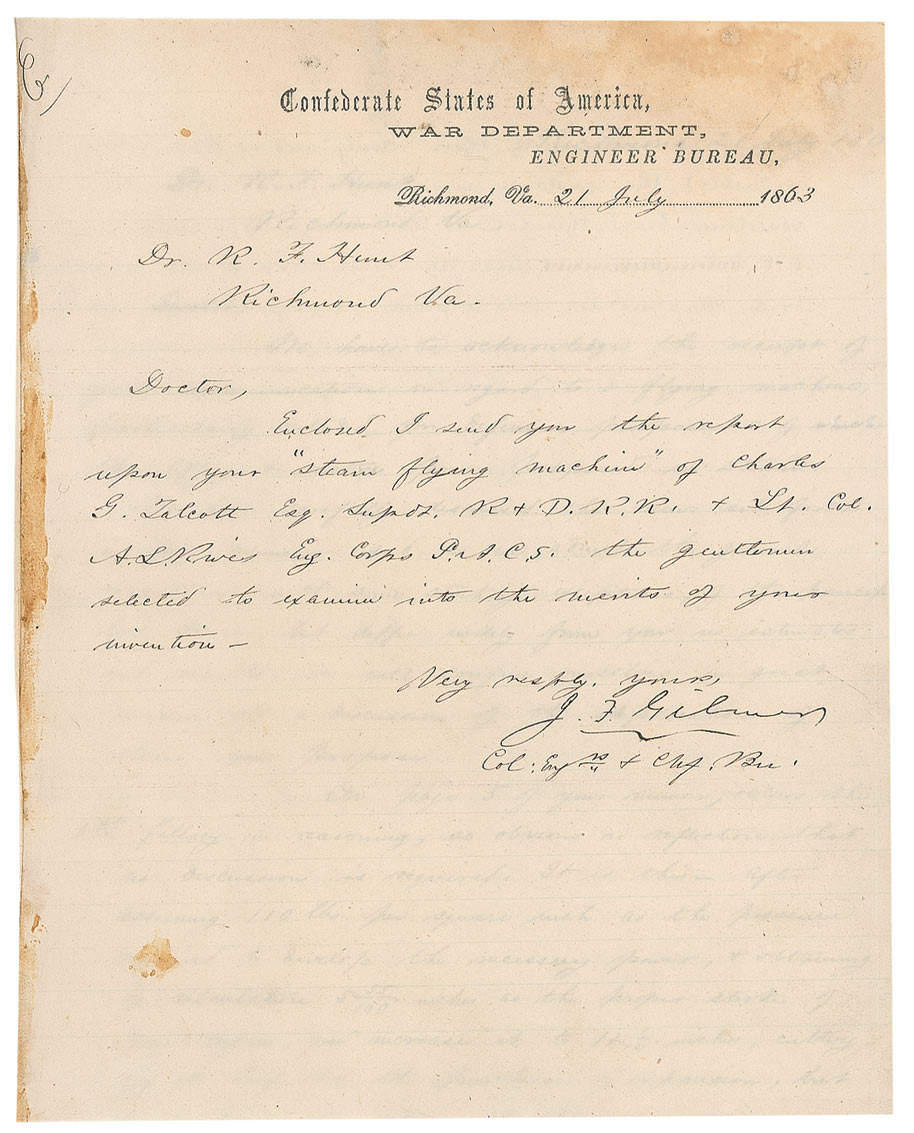 Confederate States of America,
WAR DEPARTMENT,
ENGINEER BUREAU,
Richmond, Va. 21 July 1863
Dr. R. F. Hunt
Richmond Va.
Doctor,
Enclosed I send you the report
upon your "steam flying machine" of Charles
G. Talcott Esq. Supdt. R & D. R. R. & Lt. Col.
A. L. Rives Eng. Corps P. A. C. S. the gentlemen
selected to examine into the merits of your
invention —
Very resply. yours,
J. F. Gilmer
Col: Engrs & Chf. Bu.